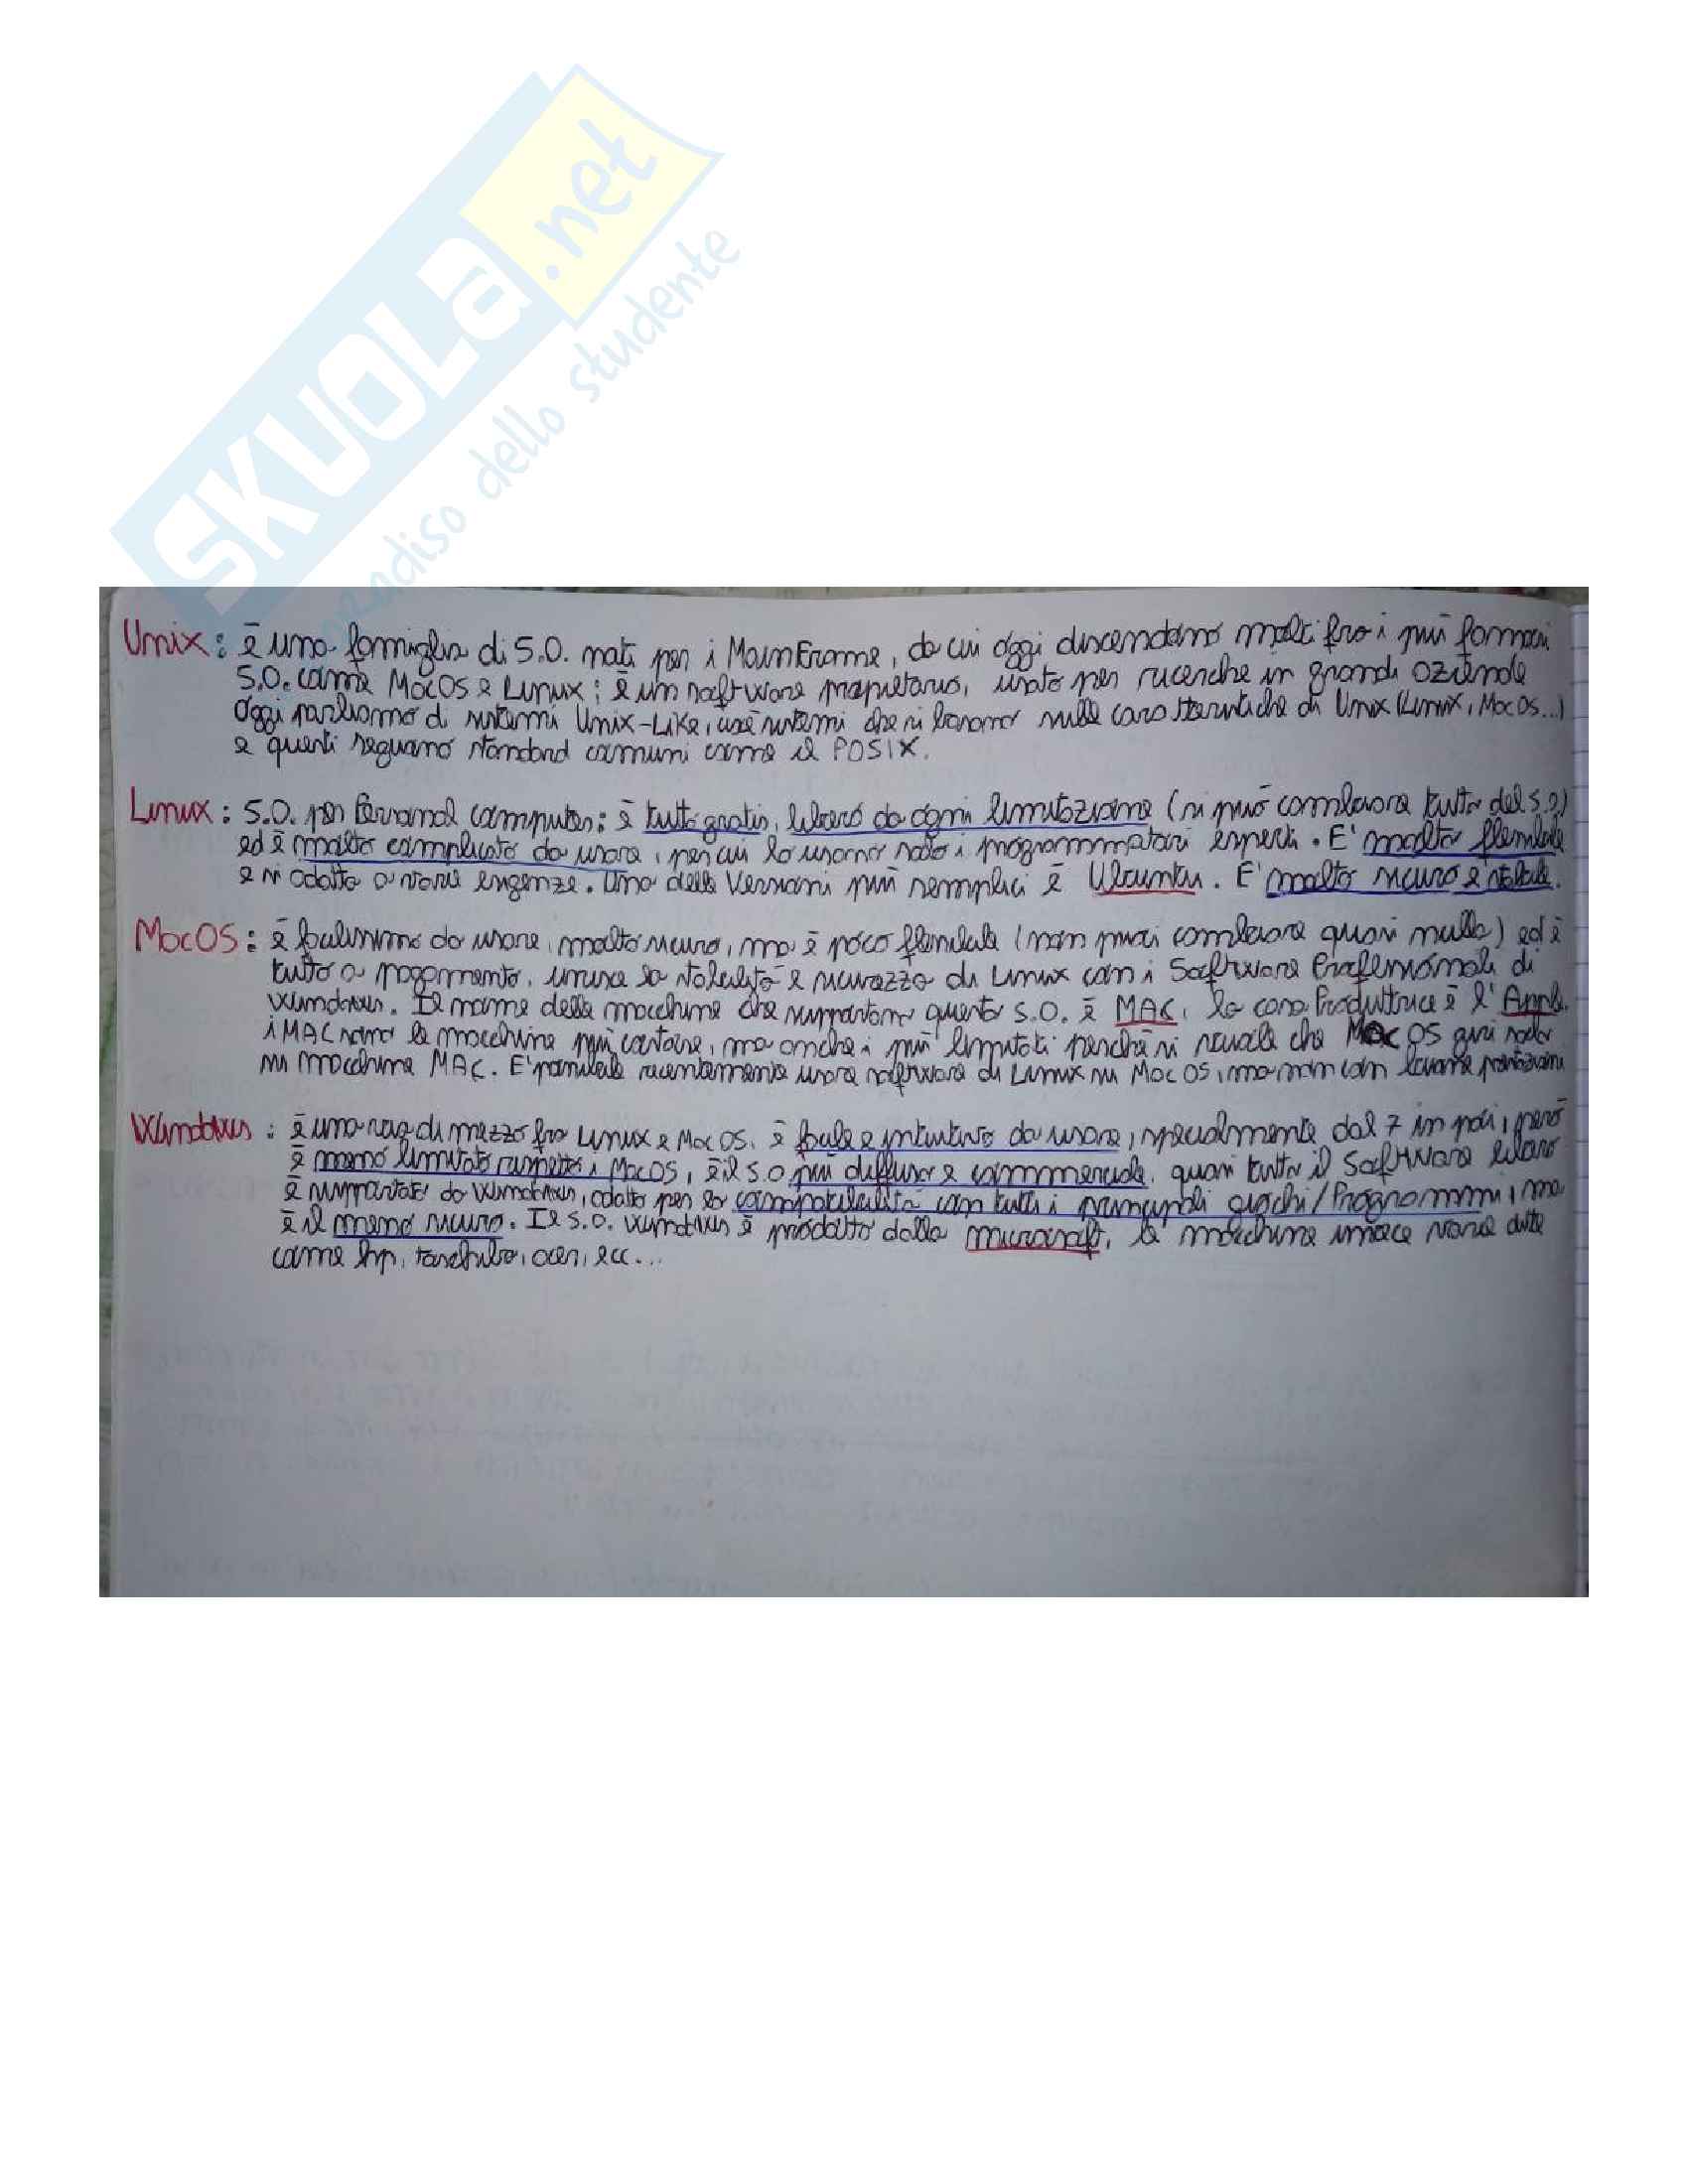 SKUOLa.net
paradiso dello studente
Unix: è una famiglia di S.O. nati per i MainFrame, da cui oggi discendono molti fra i più famosi
S.O. come MacOS e Linux; è un software proprietario, usato per ricerche in grandi aziende
Oggi parliamo di sistemi Unix-Like, cioè sistemi che si basano sulle caratteristiche di Unix (Linux, MacOS...)
e questi seguono standard comuni come il POSIX.
Linux: S.O. per Personal computer: è tutto gratis, libero da ogni limitazione (si può cambiare tutto del S.O.)
ed è molto complicato da usare, per cui lo usano solo i programmatori esperti. E' molto flessibile
e si adatta a varie esigenze. Una delle versioni più semplici è Ubuntu. E' molto sicuro e stabile.
MacOS: è facilissimo da usare, molto sicuro, ma è poco flessibile (non puoi cambiare quasi nulla) ed è
tutto a pagamento, unisce la stabilità e sicurezza di Linux con i Software Professionali di
Windows. Il nome delle macchine che supportano questo S.O. è MAC, la casa Produttrice è l'Apple.
i MAC sono le macchine più costose, ma anche i più limitati perché si scuole che Mac OS giri solo
su macchine MAC. E' possibile recentemente usare software di Linux su Mac OS, ma non con buone prestazioni
Windows: è una via di mezzo fra Linux e MacOS. è facile e intuitivo da usare, specialmente dal 7 in poi, però
è meno limitato rispetto i MacOS, è il S.O. più diffuso e commerciale, quasi tutto il Software libero
è supportato da Windows, adatto per la compatibilità con tutti i principali giochi/Programmi, ma
è il meno sicuro. Il S.O. Windows è prodotto dalla microsoft, le macchine invece varie ditte
come hp, toschiba, acer, ecc...